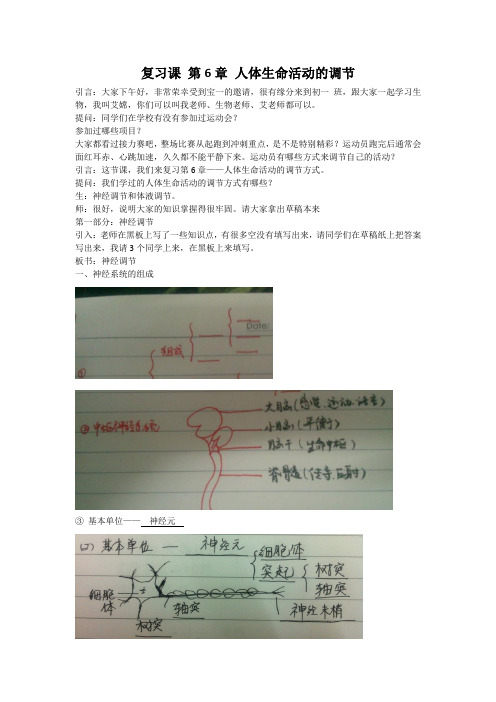 复习课 第6章 人体生命活动的调节
引言：大家下午好，非常荣幸受到宝一的邀请，很有缘分来到初一 班，跟大家一起学习生
物，我叫艾嫦，你们可以叫我老师、生物老师、艾老师都可以。
提问：同学们在学校有没有参加过运动会？
参加过哪些项目？
大家都看过接力赛吧，整场比赛从起跑到冲刺重点，是不是特别精彩？运动员跑完后通常会
面红耳赤、心跳加速，久久都不能平静下来。运动员有哪些方式来调节自己的活动？
引言：这节课，我们来复习第6章——人体生命活动的调节方式。
提问：我们学过的人体生命活动的调节方式有哪些？
生：神经调节和体液调节。
师：很好，说明大家的知识掌握得很牢固。请大家拿出草稿本来
第一部分：神经调节
引入：老师在黑板上写了一些知识点，有很多空没有填写出来，请同学们在草稿纸上把答案
写出来，我请3个同学上来，在黑板上来填写。
板书：神经调节
一、神经系统的组成
Date:
组成
①
大脑(感觉、运动、语言)
②中枢神经系统
小脑(平衡)
脑干(生命中枢)
脊髓(传导、反射)
③ 基本单位—— 神经元
基本单位 — 神经元
细胞体
突起
树突
轴突
细胞
体
轴突
神经末梢
树突